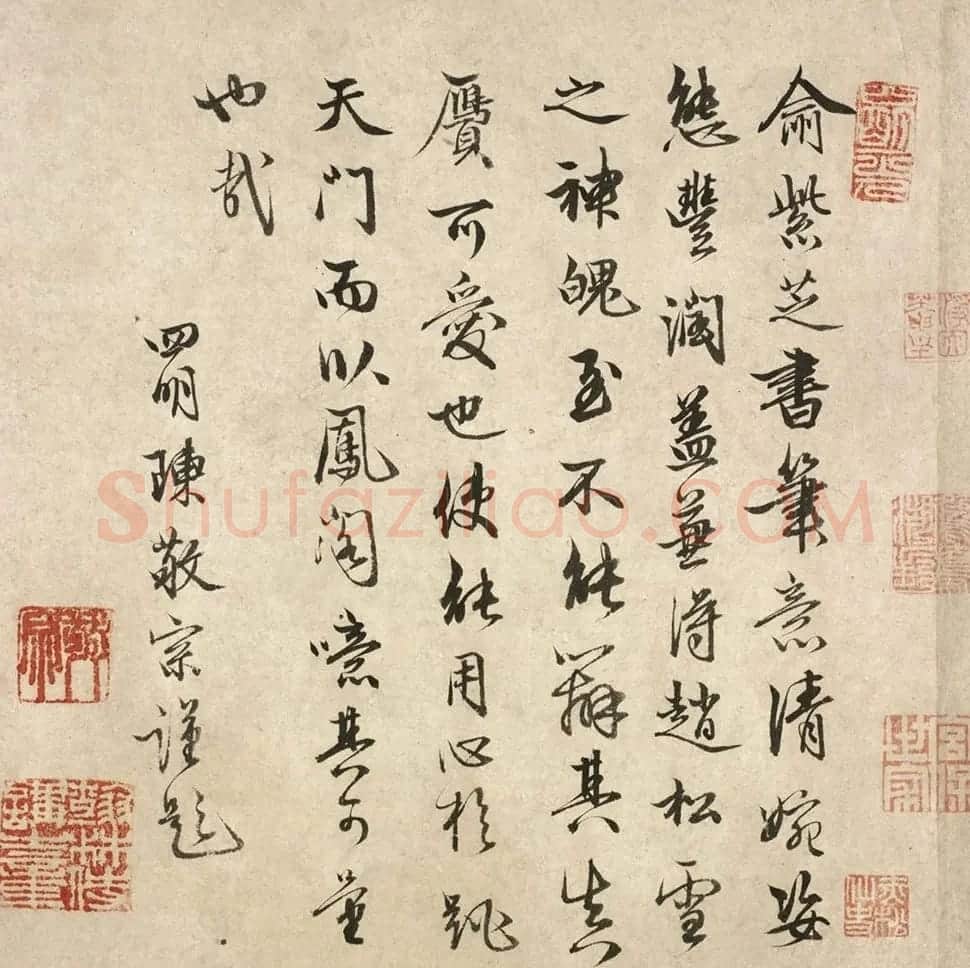 俞紫芝書筆意清婉姿
態豐潤蓋兼得趙松雪
之神魄至不能辯其真
贋可愛也使能用心於跳
天門而臥鳳閣噫其可量
也哉
四明陳敬宗謹題
Shufaziliao.COM